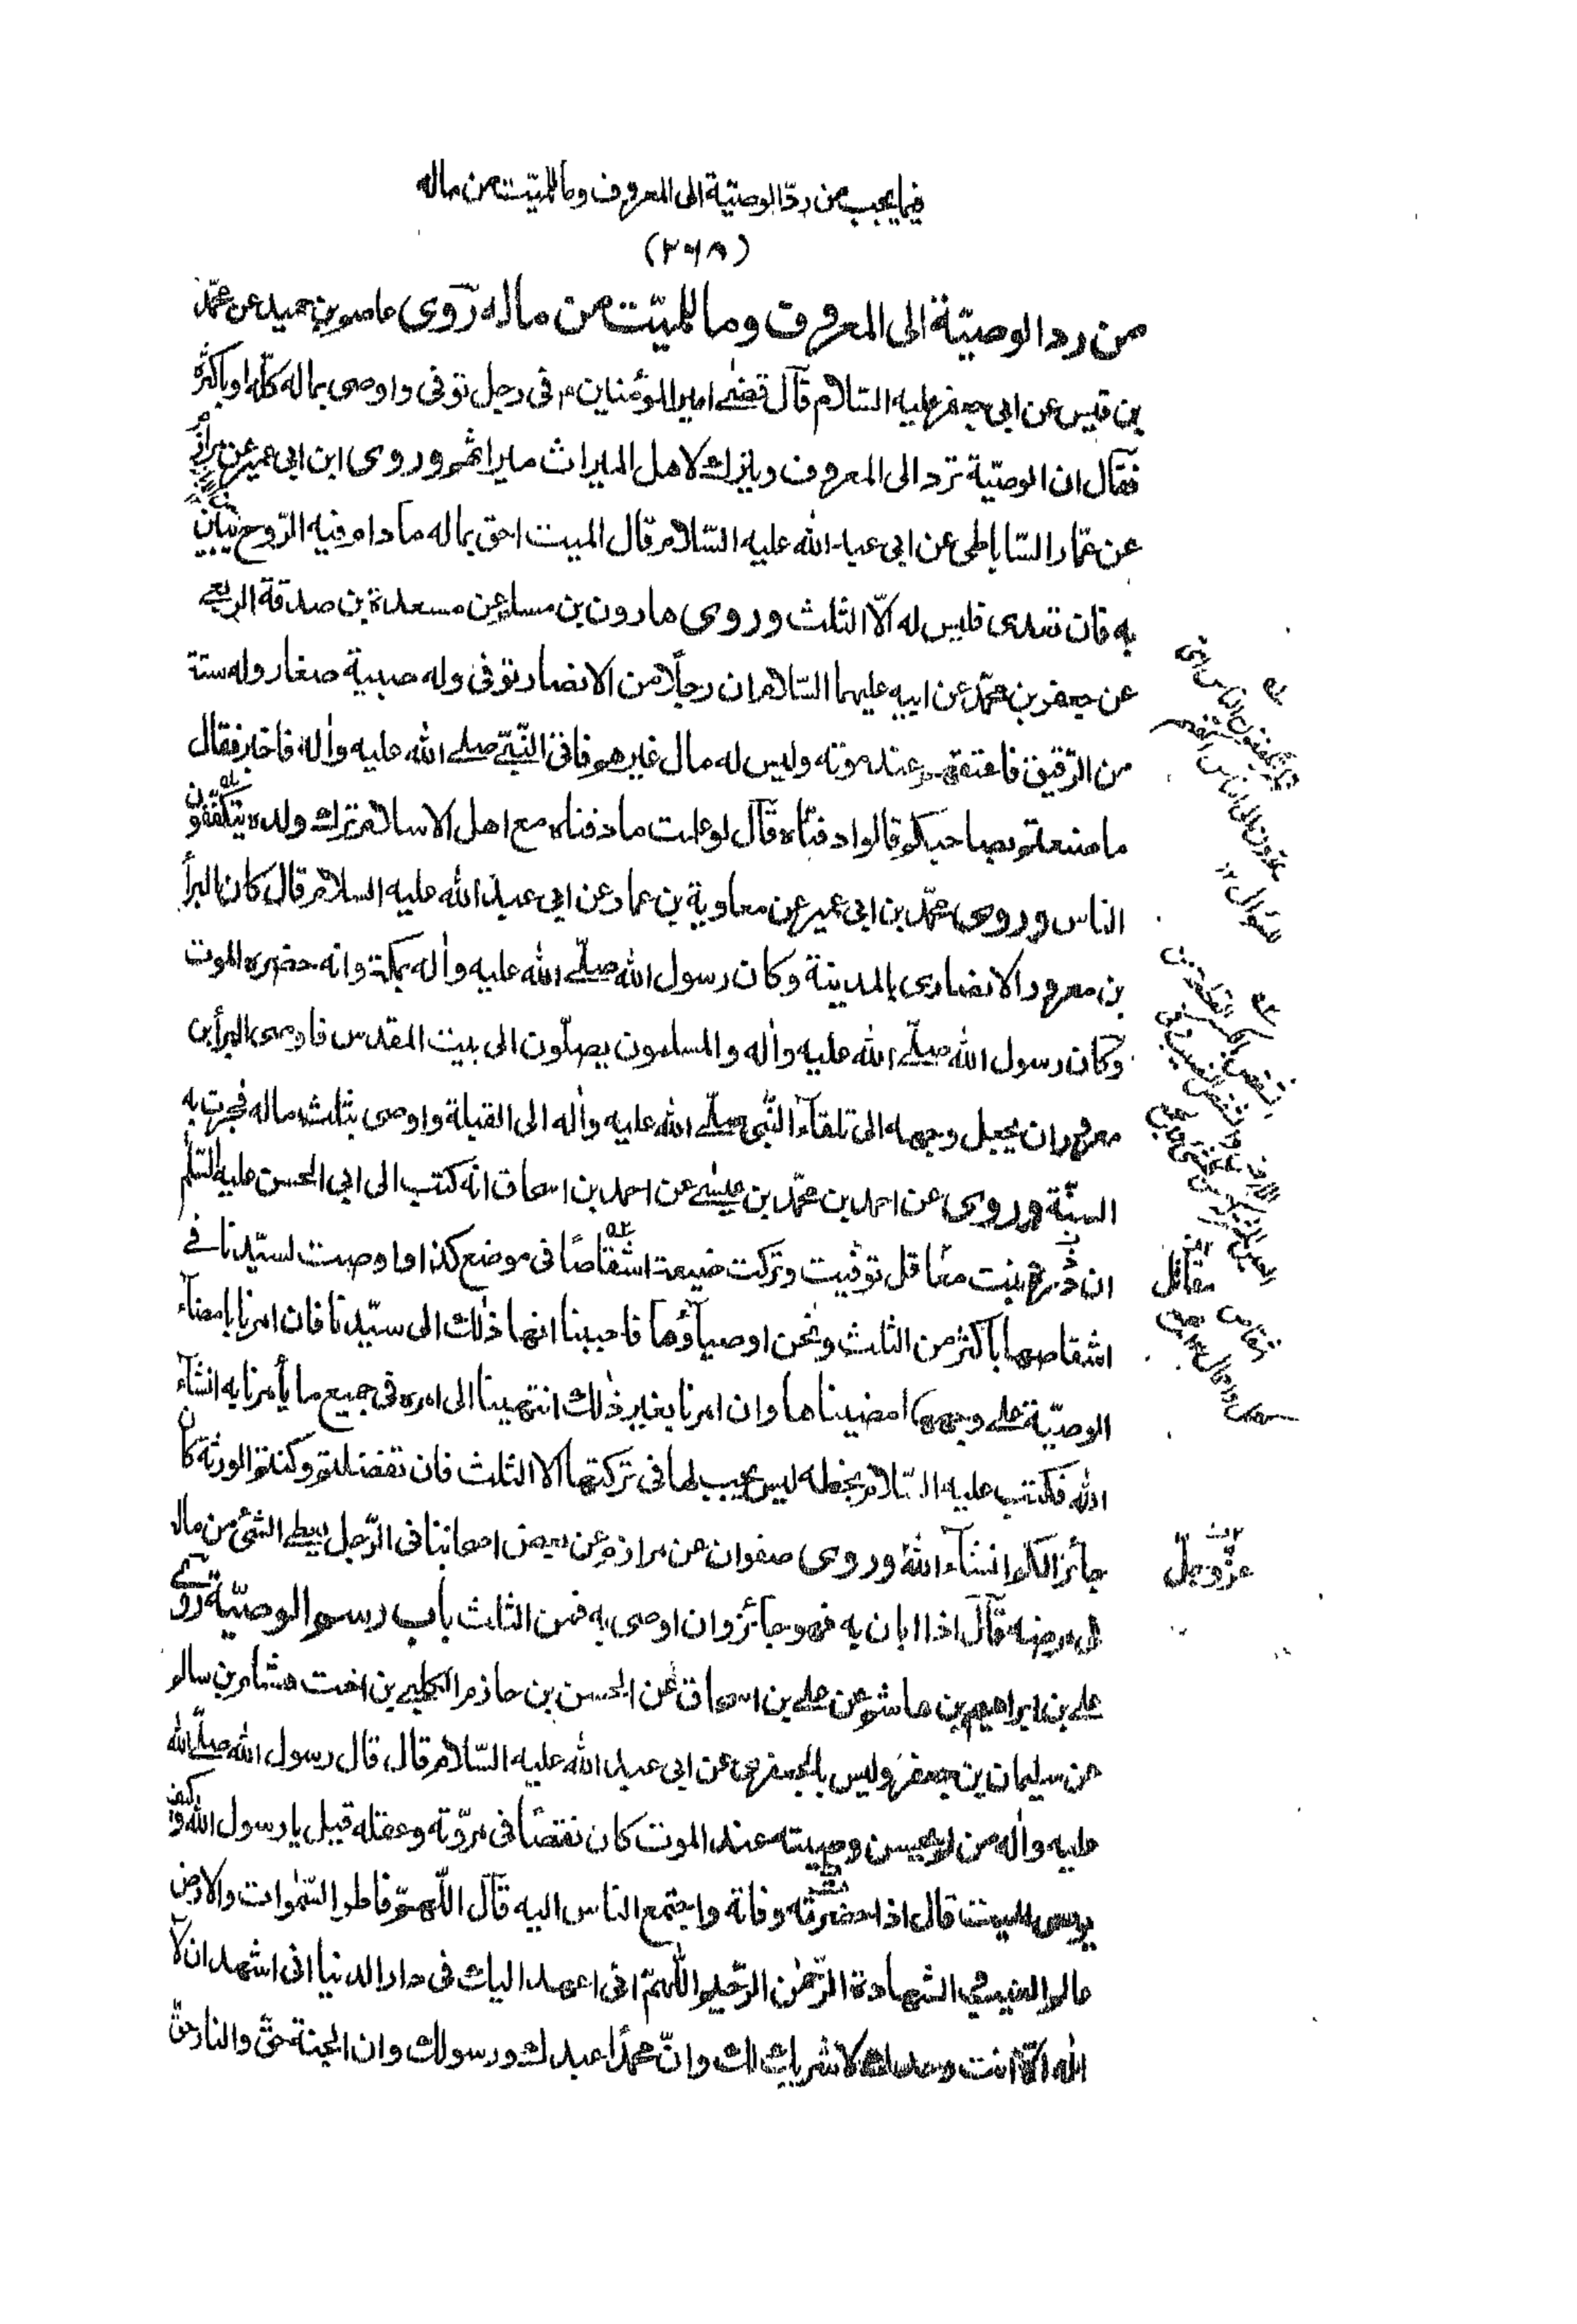 فيما يجب من ردّ الوصيّة الى المعروف وما للميّت من ماله
(٢٦٨)
من رد الوصيّة الى المعروف وما للميّت من ماله رَوى عاصم بن حميد عن محمّد
بن قيس عن ابي جعفر عليه السّلام قال قضٰى امير المؤمنين ؏ في رجل توفى واوصى بماله كلّه او باكثره
فقال ان الوصيّة ترد الى المعروف ويترك لاهل الميراث ميراثهم وروى ابن ابي عمير عن مرازم
عن عمّار السّاباطى عن ابي عبد الله عليه السّلام قال الميت احق بماله ما دام فيه الرّوح يبين
به فان تعدى فليس له الّا الثلث وروى هارون بن مسلم عن مسعدة بن صدقة الربعى
عن جعفر بن محمّد عن ابيه عليهما السّلام ان رجلًا من الانصار توفى وله صبية صغار وله ستة
من الرّقيق فاعتقهم عند موته وليس له مال غيرهم فاتى النّبىّ صلى الله عليه واٰله فاخبر فقال
ما صنعتم بصاحبكم قالوا دفنّاه قال لو علمت ما دفناه مع اهل الاسلام ترك ولده يتكفّفون
الناس وروى محمّد بن ابي عمير عن معاوية بن عمار عن ابي عبد الله عليه السلام قال كان البرأ
بن معرور الانصارى بالمدينة وكان رسول الله صلّى الله عليه واٰله بمكّة وانه حضره الموت
وكان رسول الله صلّى الله عليه واٰله والمسلمون يصلّون الى بيت المقدس فاوصى البرأ بن
معرور ان يجعل وجهه الى تلقاء النّبى صلّى الله عليه واٰله الى القبلة واوصى بثلث ماله فجرت به
السنّة وروى عن احمد بن محمّد بن عيسٰى عن احمد بن اسحاق انه كتب الى ابي الحسن عليه السّلم
ان درة بنت مقاتل توفّيت وتركت ضيعة اشقاصًا في موضع كذا واوصت لسيّدنا في
اشقاصها باكثر من الثلث ونحن اوصياؤها فاحببنا انهاء ذٰلك الى سيّدنا فان امرنا بامضاء
الوصيّة على وجهها امضيناها وان امرنا بغير ذٰلك انتهينا الى امره في جميع ما يأمرنا به انشاء
الله فكتب عليه السّلام بخطه ليس يجب لها في تركتها الا الثلث فان تفضلتم وكنتم الورثة كان
جائزا لكم انشاء الله وروى صفوان عن مرازم عن بعض اصحابنا في الرّجل يعطى الشئ من ماله
في مرضه قال اذا ابان به فهو جائز وان اوصى به فمن الثلث باب رسم الوصيّة روى
على بن ابراهيم بن هاشم عن على بن اسحاق عن الحسن بن حازم الكلبى بن اخت هشام بن سالم
عن سليمان بن جعفر وليس بالجعفرى عن ابي عبد الله عليه السّلام قال قال رسول الله صلّى الله
عليه واٰله من لم يحسن وصيته عند الموت كان نقصًا في مروّته وعقله قيل يا رسول الله وكيف
يوصى الميت قال اذا حضرته وفاة واجتمع الناس اليه قال اللّهمّ فاطر السّمٰوات والارض
عالم الغيب والشهادة الرّحمٰن الرّحيم اللّهمّ انى اعهد اليك في دار الدنيا انى اشهد ان لا
اله الّا انت وحدك لا شريك لك وانّ محمدًا عبدك ورسولك وان الجنة حق والنار حق
مقاتل
عزّ وجلّ